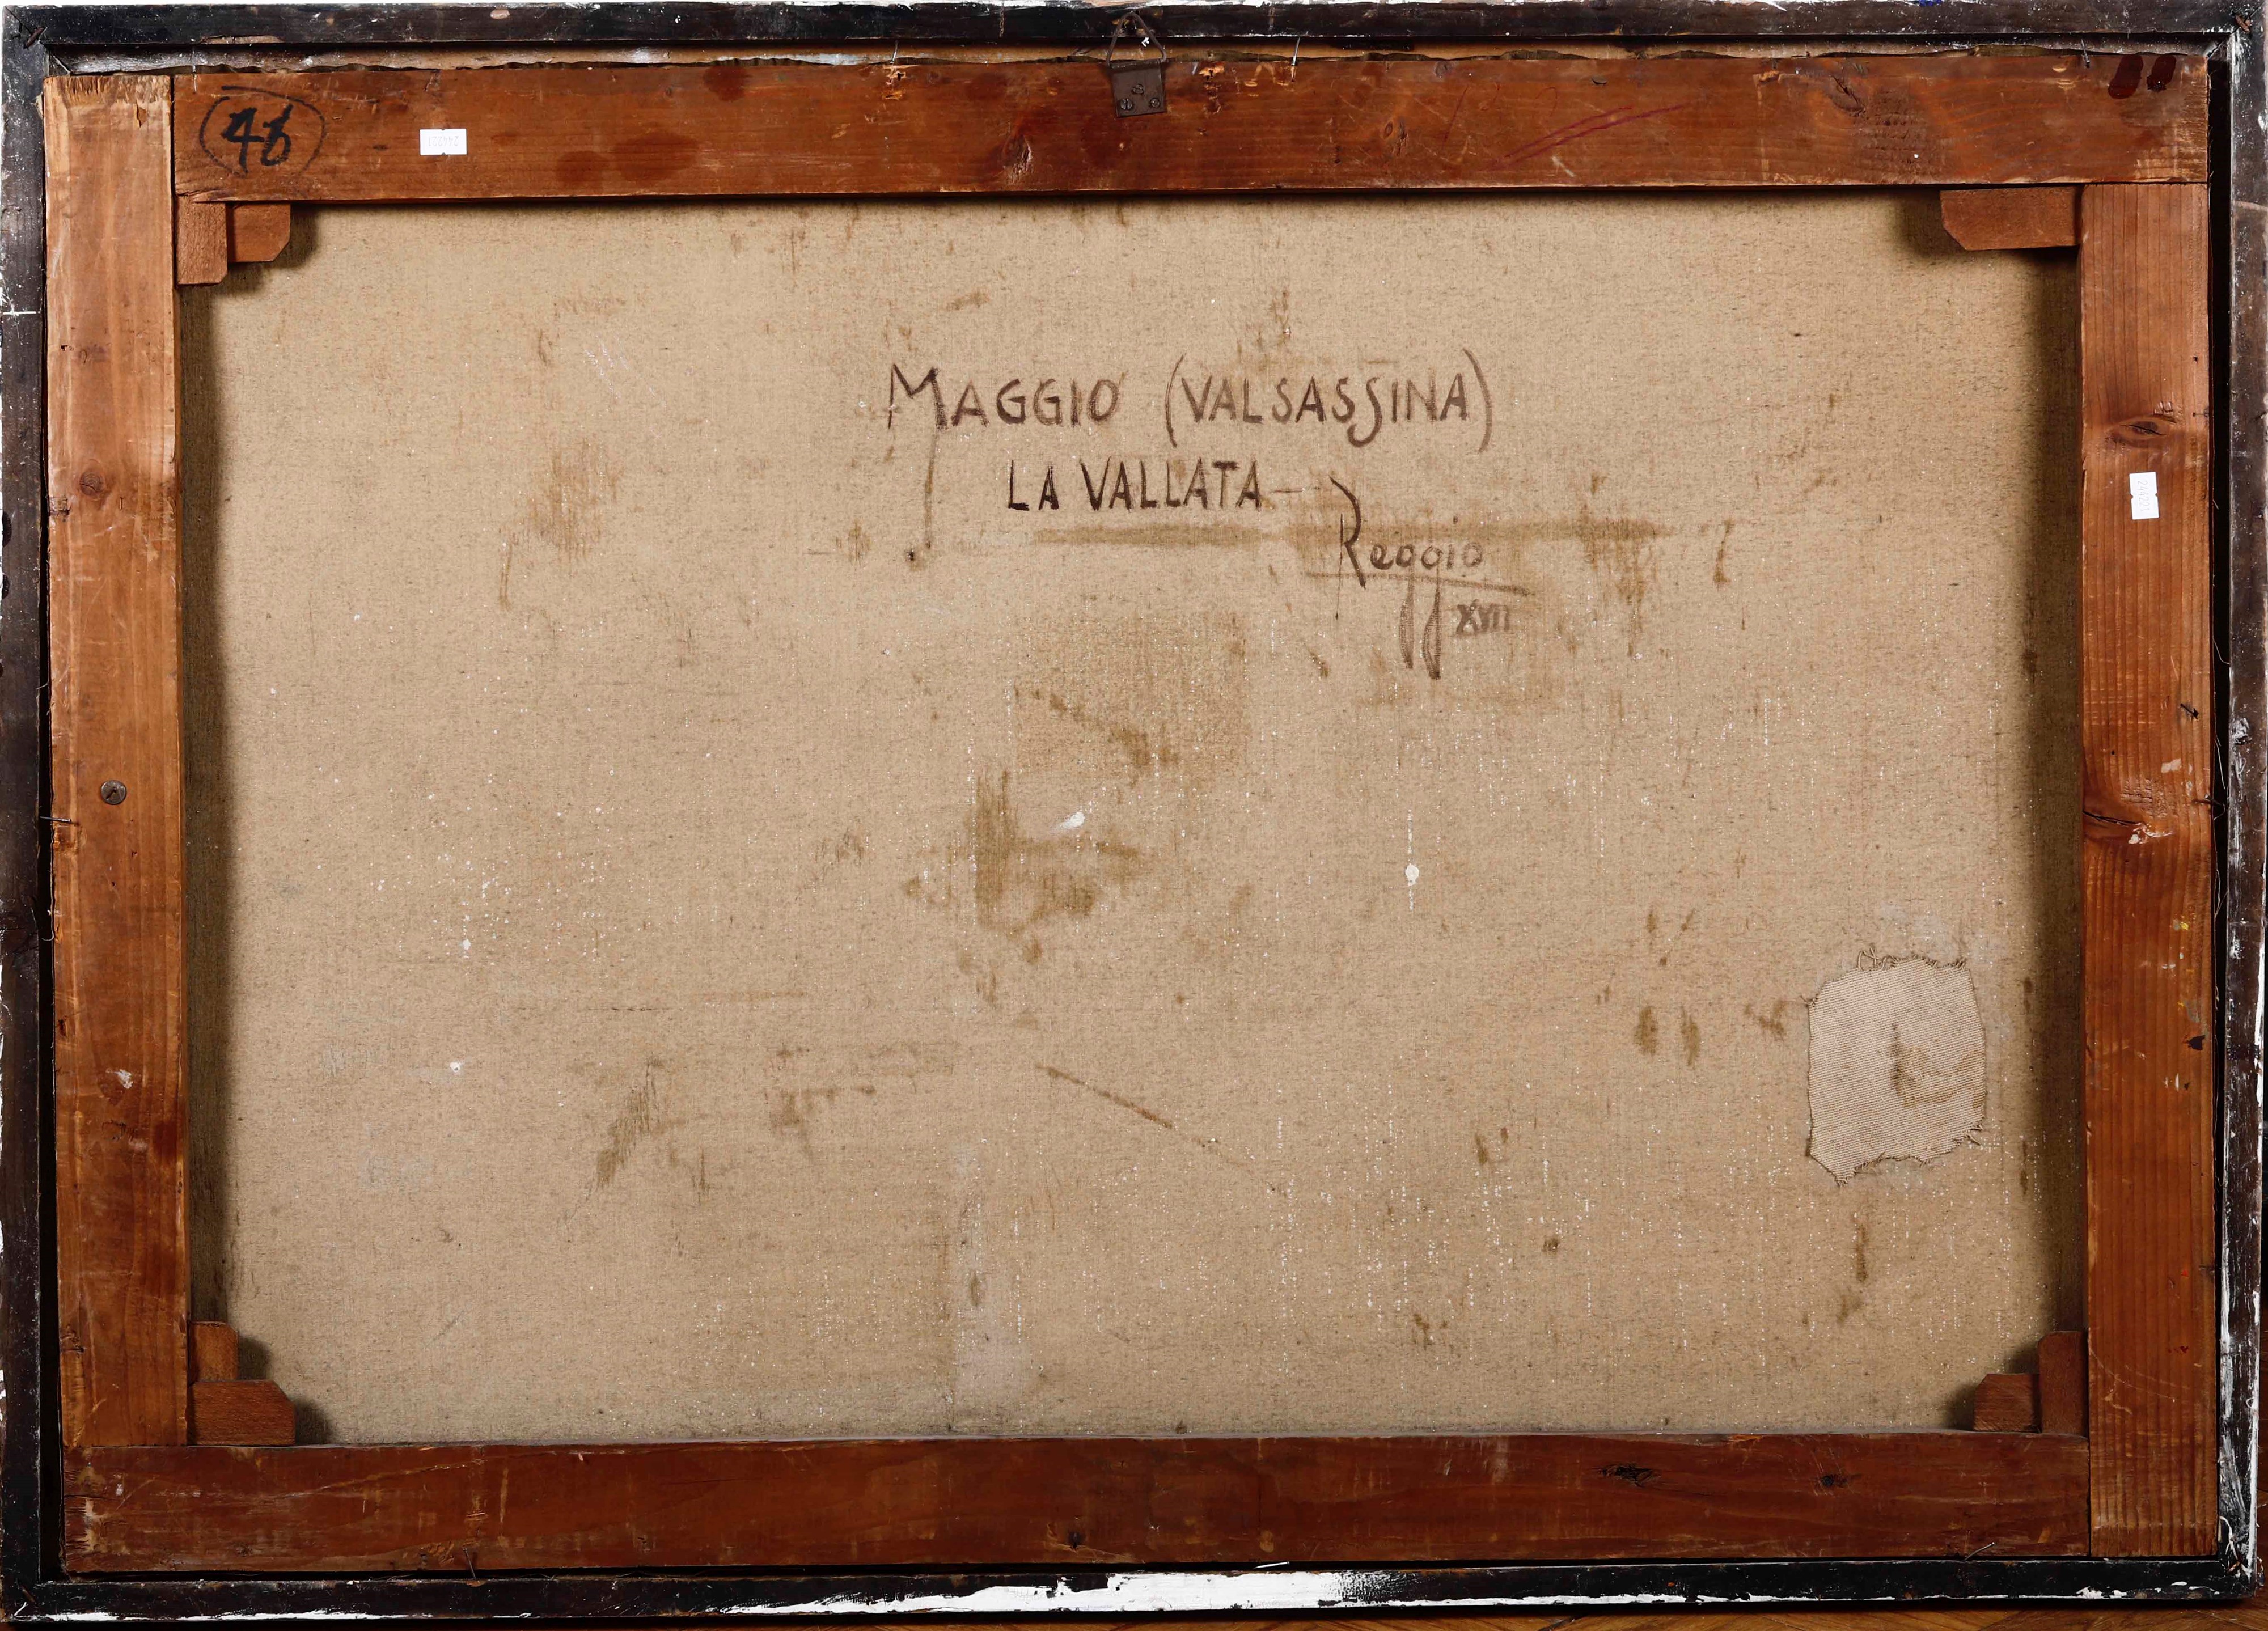 48
MAGGIO (VALSASSINA)
LA VALLATA —
Reggio
XVII